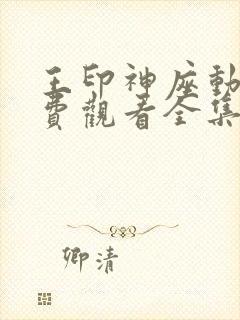 王印神座動
費觀看全集
卿清